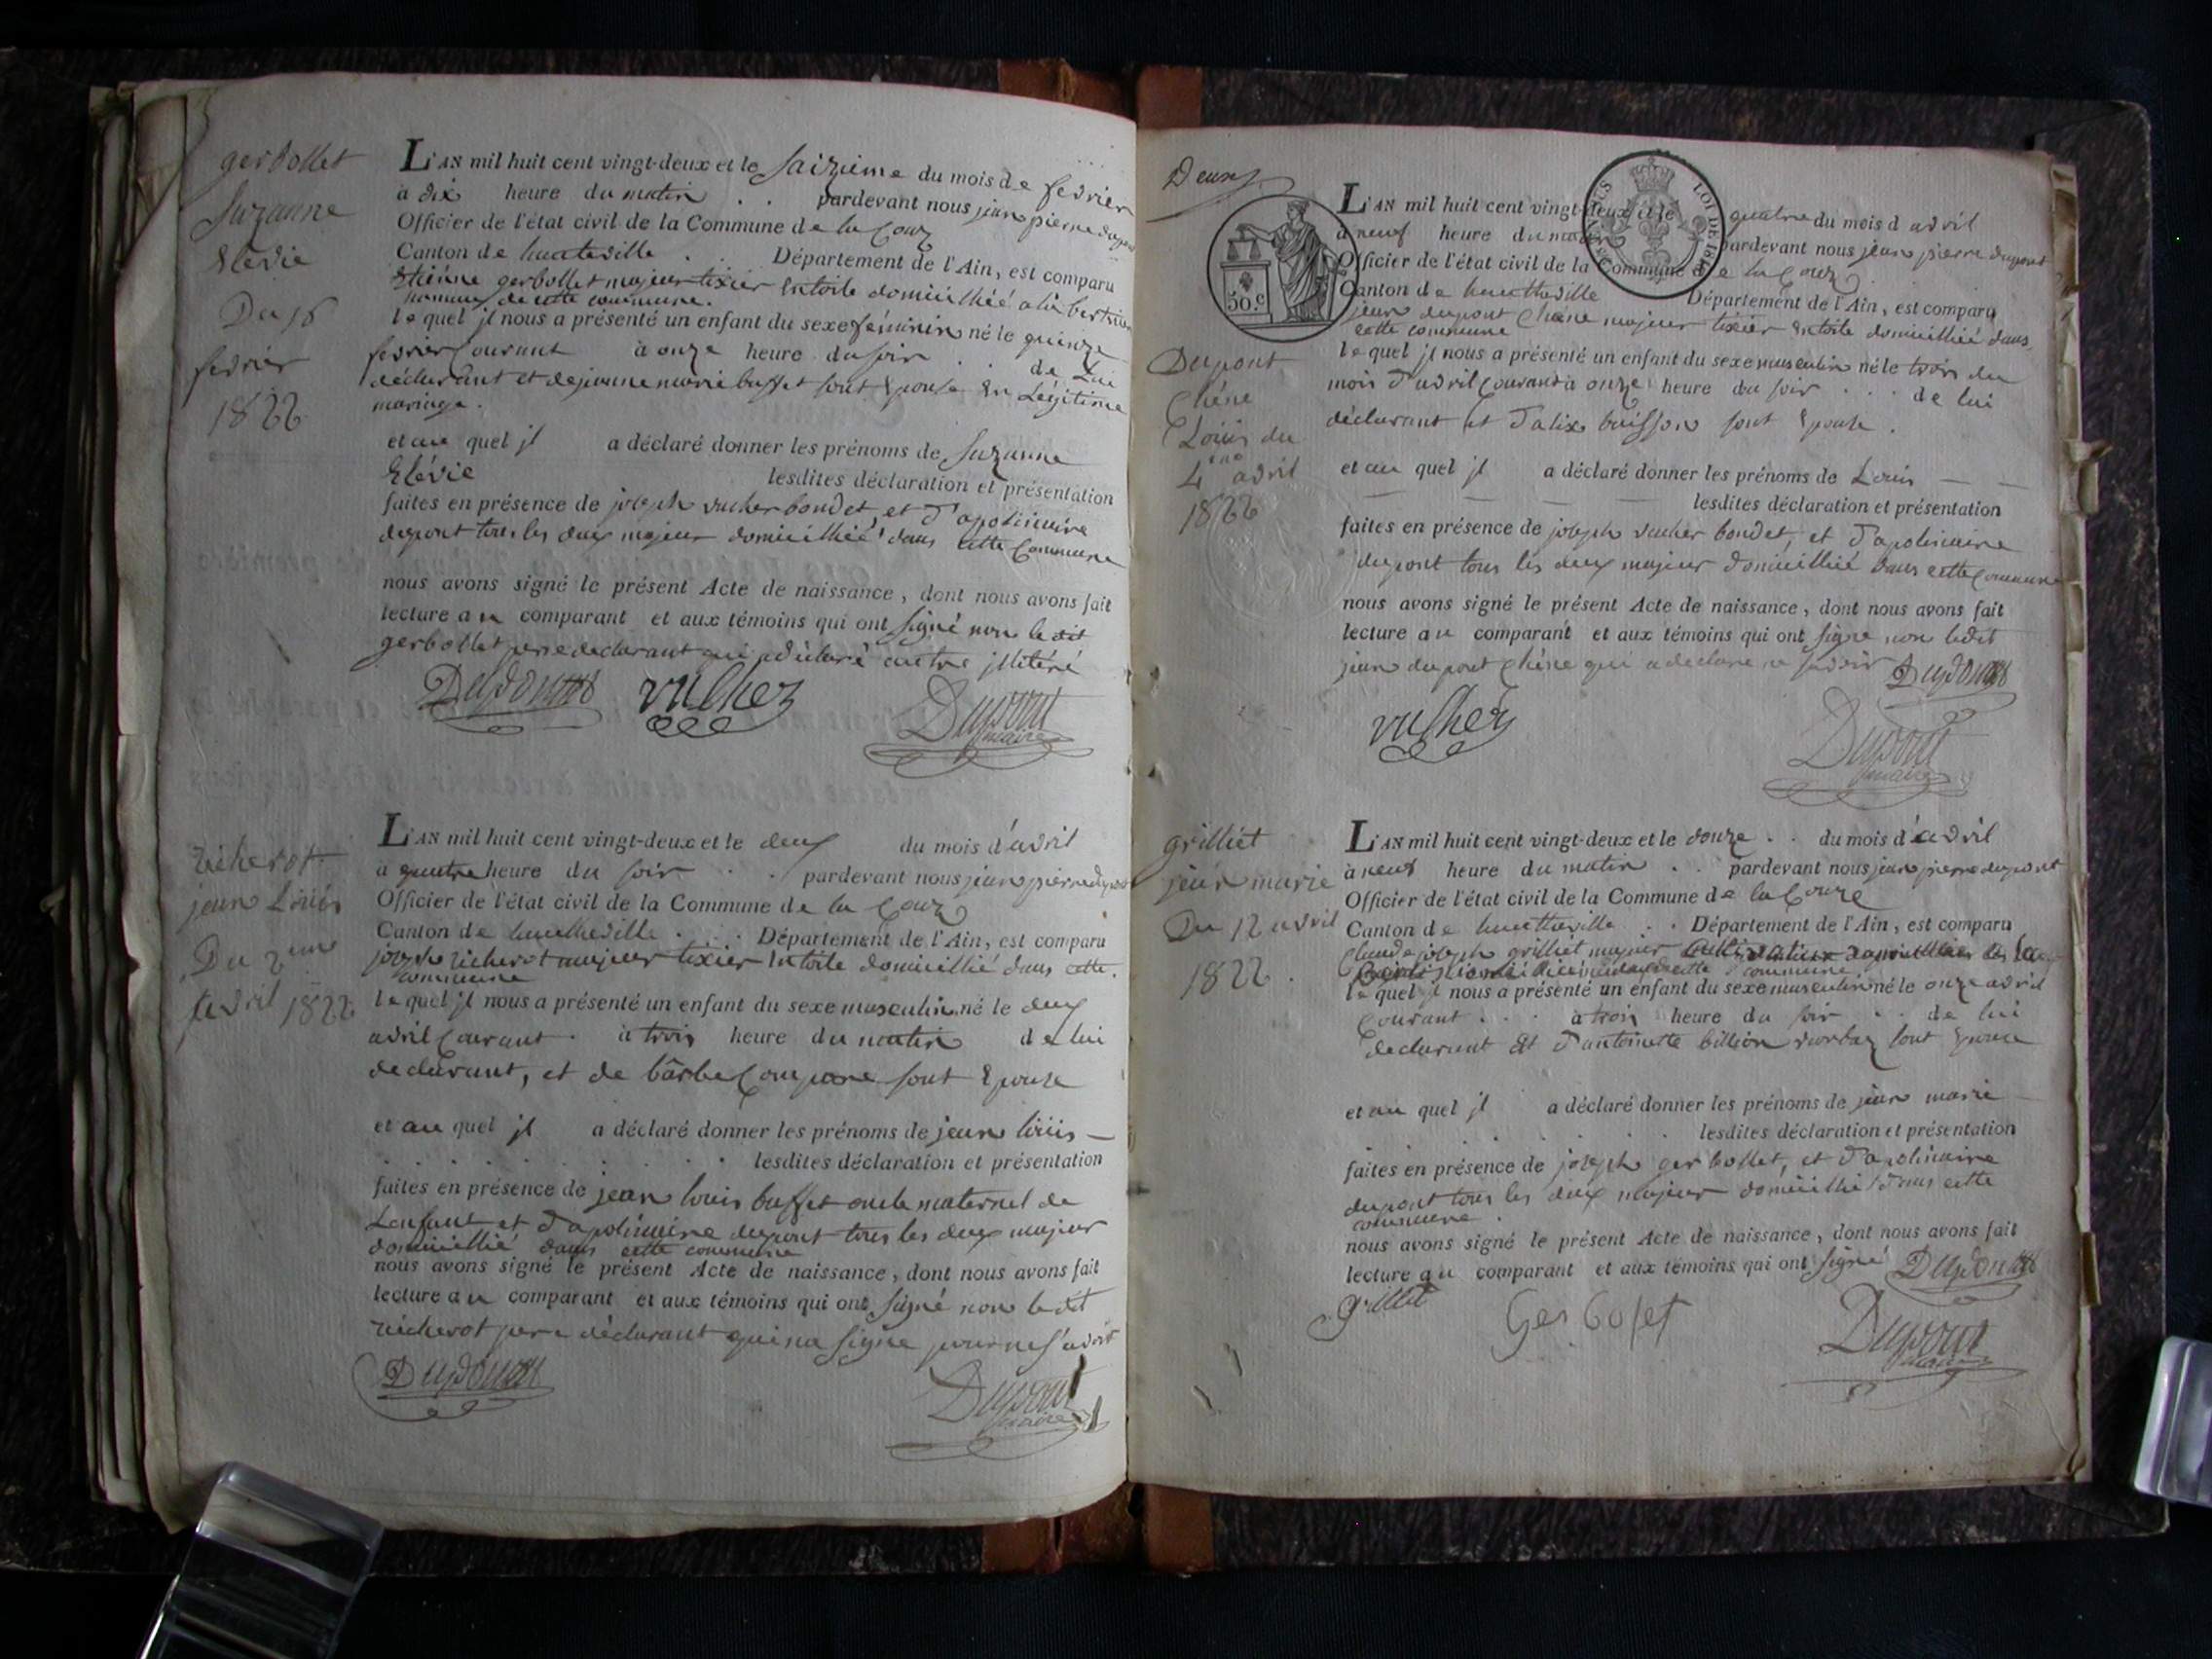 gerbollet
Suzanne
Elévie
Du 16
fevrier
1822
L'AN mil huit cent vingt-deux et le saizieme du mois de fevrier
à dix heure du matin . . pardevant nous jean pierre dupont
Officier de l'état civil de la Commune de la Couz
Canton de hauteville . Département de l'Ain, est comparu
Etiénne gerbollet majeur tixier Entoile domicillié a la
hameau de cette commune.
lequel jl nous a présenté un enfant du sexe féminin né le quinze
fevrier Courant à onze heure du soir . . de Lui
déclarant et de jeanne marie buffet sont Epouse En Légitime
mariage.
et au quel jl a déclaré donner les prénoms de Suzanne
Elévie lesdites déclaration et présentation
faites en présence de joseph vucher bondet, et d'apolinaire
dupont tous les deux majeur domicillié dans cette Commune
nous avons signé le présent Acte de naissance, dont nous avons fait
lecture au comparant et aux témoins qui ont signé non le dit
gerbollet pere declarant qui a déclaré être jllitéré
Dupont vucher
Dupont
maire
richerot
jean Louis
Du 2eme
avril 1822
L'AN mil huit cent vingt-deux et le deux du mois d'avril
à quatre heure du soir . . pardevant nous jean pierre dupont
Officier de l'état civil de la Commune de la Couz
Canton de hautheville . . . Département de l'Ain, est comparu
joseph richerot majeur tixier Entoile domicillié dans cette
commune
lequel jl nous a présenté un enfant du sexe masculin né le deux
avril Courant . à trois heure du matin de lui
declarant, et de bârbe Compare sont Epouse
et au quel jl a déclaré donner les prénoms de jean louis —
. . . . . . lesdites déclaration et présentation
faites en présence de jean louis buffet oncle maternel de
Lenfant et d'apolinaire dupont tous les deux majeur
domicillié dans cette commune
nous avons signé le présent Acte de naissance, dont nous avons fait
lecture au comparant et aux témoins qui ont signé non ledit
richerot pere déclarant qui na signe pour ne savoir
Dupont
Dupont
maire
Deux
50.c
LOI DE 1816
Dupont
Chéne
Louis du
4eme avril
1822
L'AN mil huit cent vingt-deux et le quatre du mois d avril
à neuf heure du matin pardevant nous jean pierre dupont
Officier de l'état civil de la Commune de la Couz
Canton de hautheville Département de l'Ain, est comparu
jean dupont Chéne majeur tixier Entoile domicillié dans
cette commune
lequel jl nous a présenté un enfant du sexe masculin né le trois du
mois d'avril Courant à onze heure du soir . . . de lui
déclarant Et d'alix buisson sont Epouse.
et au quel jl a déclaré donner les prénoms de Louis — —
— — — — lesdites déclaration et présentation
faites en présence de joseph vucher bondet, et d'apolinaire
dupont tous les deux majeur domicillié dans cette Commune
nous avons signé le présent Acte de naissance, dont nous avons fait
lecture au comparant et aux témoins qui ont signe non ledit
jean dupont Chéne qui a declare ne savoir Dupont
vucher
Dupont
maire
grilliet
jean marie
Du 12 avril
1822.
L'AN mil huit cent vingt-deux et le douze . . du mois d'avril
à neuf heure du matin . . pardevant nous jean pierre dupont
Officier de l'état civil de la Commune de la Couze
Canton de hauttaville . . Département de l'Ain, est comparu
Claude joseph grilliet majeur cultivateur
cette commune
lequel jl nous a présenté un enfant du sexe masculin né le onze avril
Courant . . . à trois heure du soir . . de lui
declarant Et d'antoinette billion sont Epouse
et au quel jl a déclaré donner les prénoms de jean marie
. . . . lesdites déclaration et présentation
faites en présence de joseph gerbollet, et d'apolinaire
dupont tous les deux majeur domicillié dans cette
commune.
nous avons signé le présent Acte de naissance, dont nous avons fait
lecture au comparant et aux témoins qui ont signé Dupont
grilliet Gerbolet
Dupont
maire